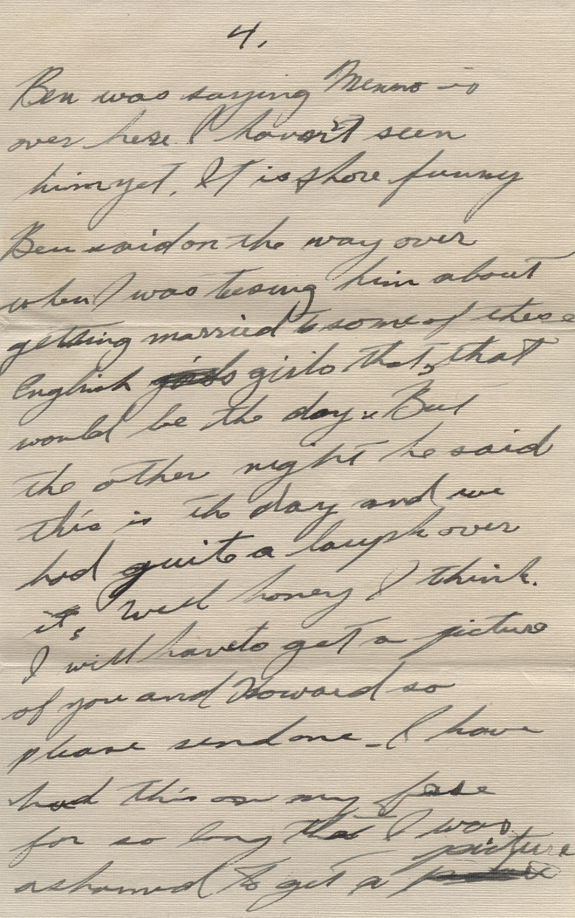 4.
Ben was saying Menno is
over here I havan't seen
him yet. It is shore funny
Ben said on the way over
when I was teesing him about
getting married to some of these
English girls that, that
would be the day. But
the other night he said
this is the day and we
had quite a laugh over
it. Well honey I think.
I will have to get a picture
of you and Howard so
please send one. I have
had this on my fase
for so long that I was
ashamed to get a picture